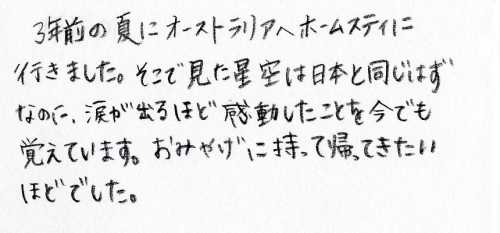 3年前の夏にオーストラリアへホームスティに
行きました。そこで見た星空は日本と同じはず
なのに、涙が出るほど感動したことを今でも
覚えています。おみやげに持って帰ってきたい
ほどでした。